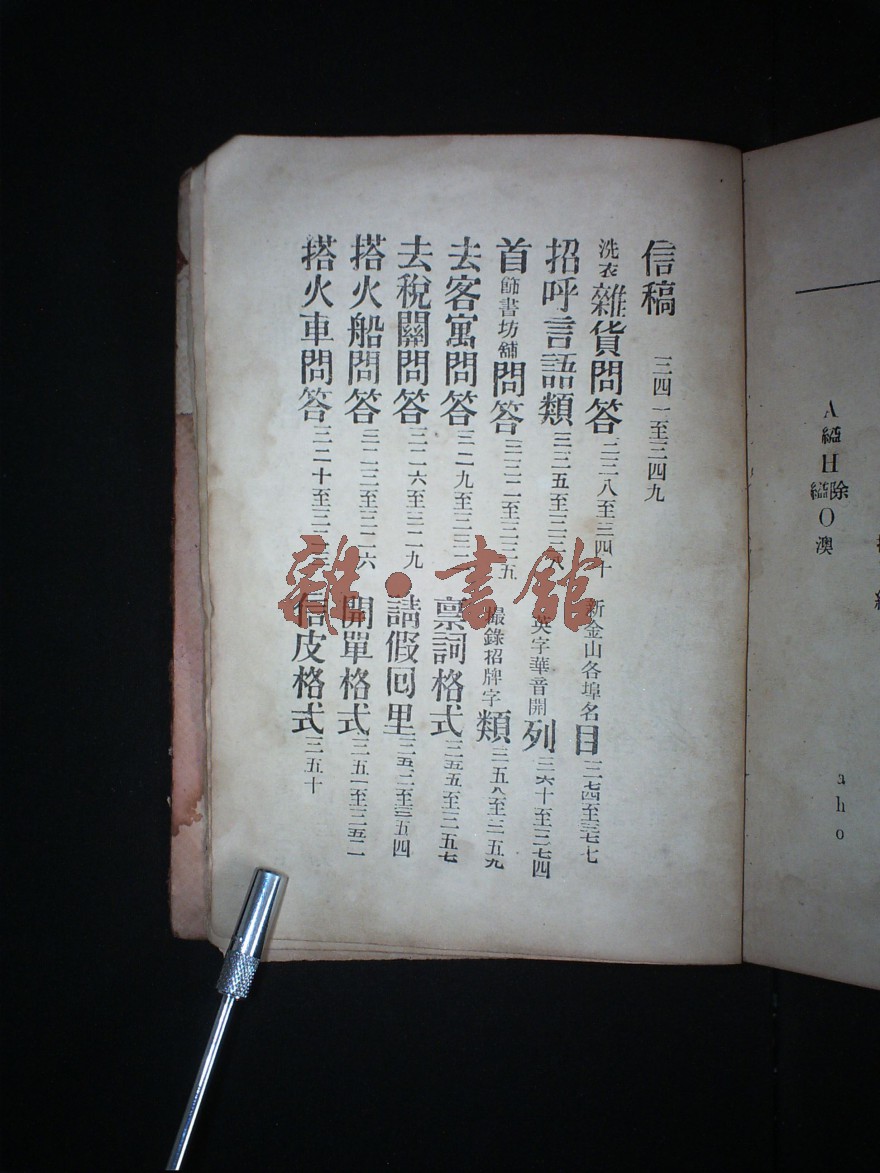 搭火車問答 三二十至三二三
搭火船問答 三二三至三二六
去稅關問答 三二六至三二九
去客寓問答 三二九至三三二
首飾書坊舖問答 三三二至三三五
招呼言語類 三三五至三三八
洗衣雜貨問答 三三八至三四十
信稿 三四一至三四九
信皮格式 三五十
開單格式 三五一至三五二
請假回里 三五二至三五四
稟詞格式 三五五至三五七
撮錄招牌字類 三五八至三五九
英字華音開列 三六十至三七四
新金山各埠名目 三七四至三七七
雜·書館
A
H
除
O
澳
aho